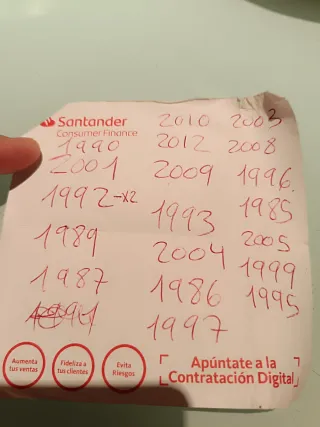 Santander
Consumer Finance
1990
2001
1992-x2
1989
1987
2010
2012
2009
1993
2004
1986
1997
2003
2008
1996.
1985
2005
1999
1995
Aumenta
tus ventas
Fideliza a
tus clientes
Evita
Riesgos
Apúntate a la
Contratación Digital